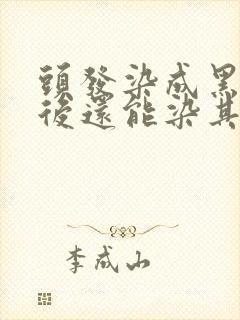 頭發染成黑
後還能染其
李成山